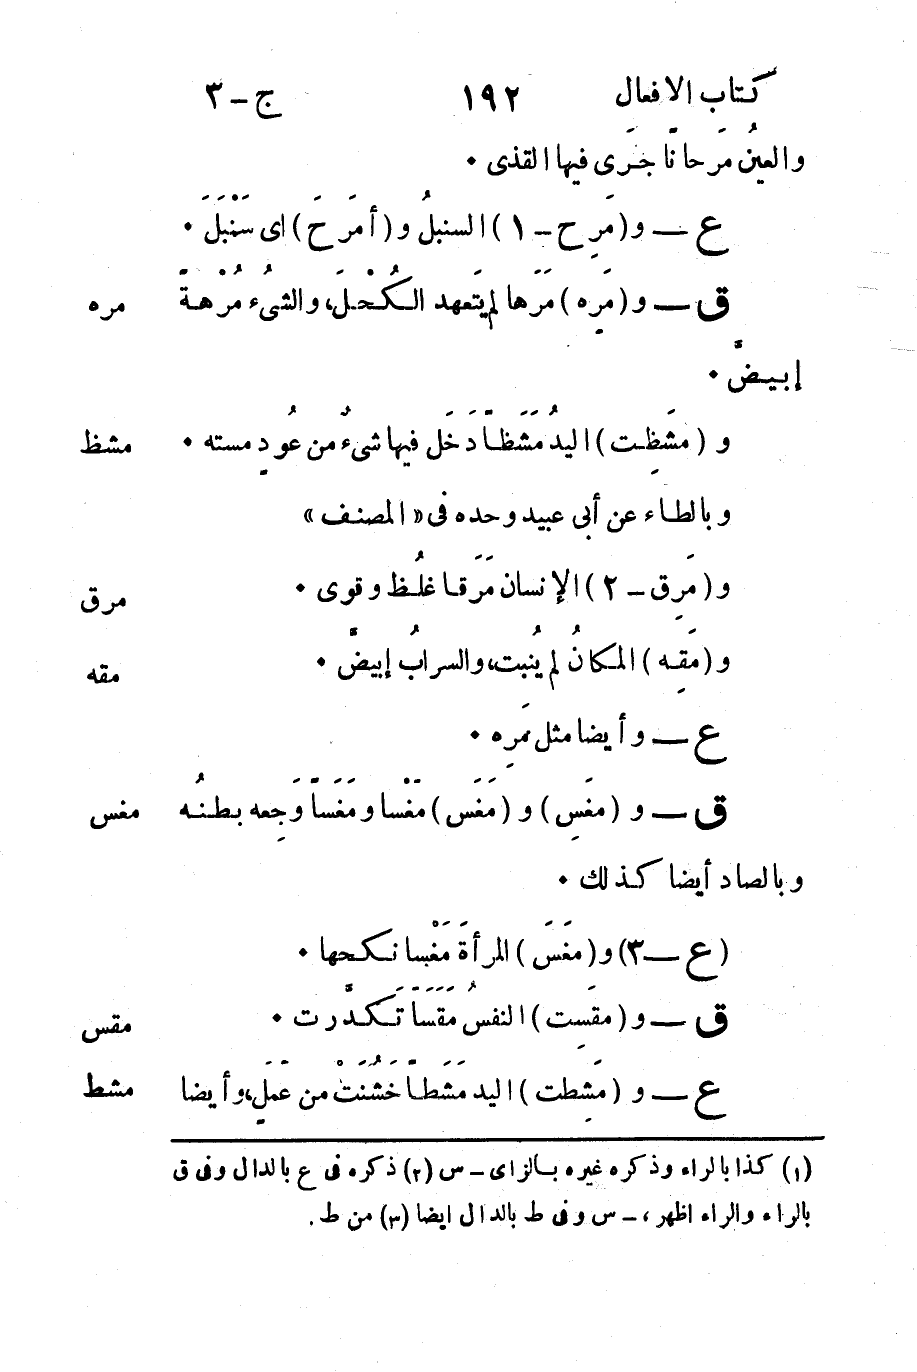 كتاب الافعال ١٩٢ ج – ٣
والعينُ مَرَحانًا جَرَى فيها القذى ·
ع — و (مَرِح – ١) السنبلُ و (أمرَحَ) اى سَنْبَلَ ·
ق — و (مَرِه) مَرَها لم يتَعهد الكُحْلَ، والشىُء مُرْهةً مره
إبيضَّ ·
و (مَشَظِت) اليدُ مَشَظاً دَخَل فيها شىءٌ من عُودٍ مسته · مشظ
وبالطاء عن أبى عبيد وحده فى «المصنف»
و (مَرِق – ٢) الإنسان مَرَقا غلُظ وقوى · مرق
و (مَقِه) المكانُ لم يُنبت، والسرابُ إبيضَّ · مقه
ع — وأيضا مثل مَرِه ·
ق — و (مَغِس) و (مَغَس) مَغْسا ومَغَساً وَجِعه بطنُه مغس
وبالصاد أيضا كذلك ·
(ع — ٣) و (مغَسَ) المرأةَ مَغْسا نكحها ·
ق — و (مقِسَت) النفسُ مَقَسَاً تَكَدَّرت · مقس
ع — و (مَشِطت) اليد مَشَطاً خَشُنَتْ من عَمَلٍ، وأيضا مشط
(١) كذا بالراء وذكره غيره بالزاى – س (٢) ذكره فى ع بالدال وفى ق
بالراء والراء اظهر، – س وفى ط بالدال ايضا (٣) من ط.